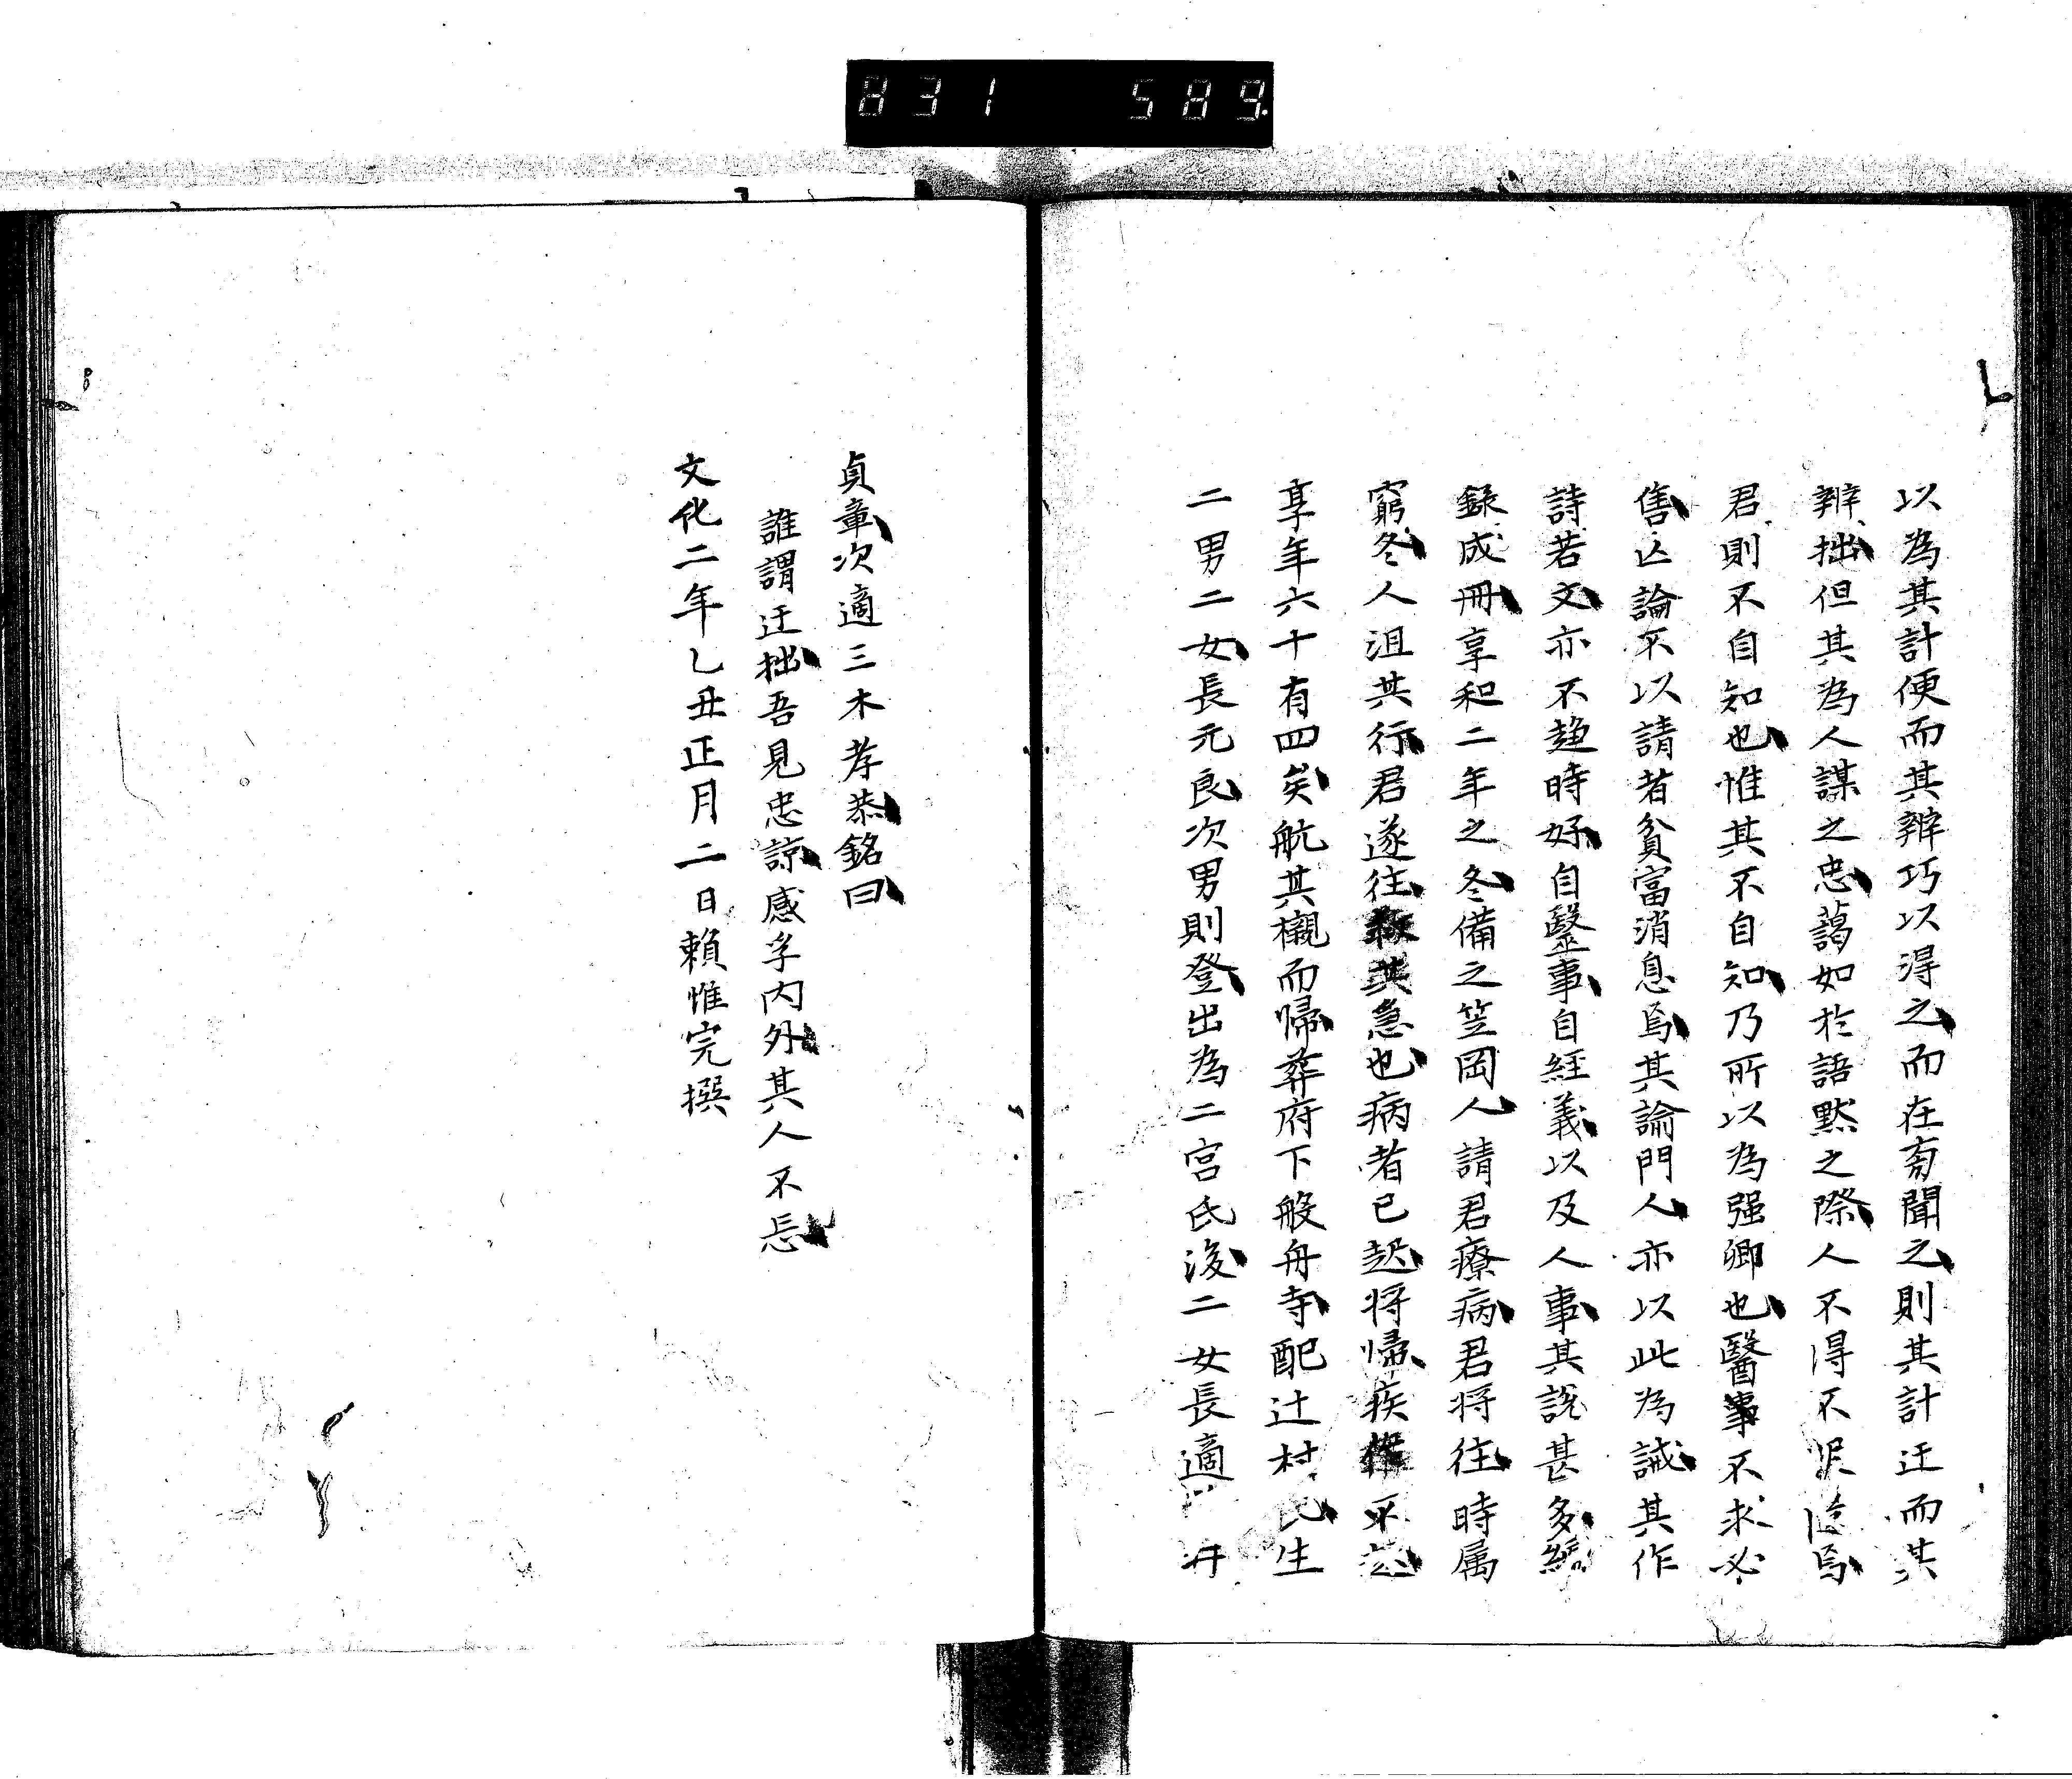 831 589.
以為其計便而其辨巧以得之而在旁聞之則其計迂而其
辨拙但其為人謀之忠藹如於語默之際人不得不服焉
君則不自知也惟其不自知乃所以為强卿也醫事不求必
售亡論不以請者貧富消息焉其論門人亦以此為誡其作
詩若文亦不趨時好自毉事自經義以及人事其說甚多
錄成冊享和二年之冬備之笠岡人請君療病君将往時属
窮冬人沮其行君遂往其急也病者已起将帰疾不
享年六十有四矣航其櫬而帰葬府下般舟寺配辻村氏生
二男二女長元良次男則登出為二宮氏後二女長適井
貞章次適三木孝恭銘曰
誰謂迂拙吾見忠諒感孚内外其人不忘
文化二年乙丑正月二日賴惟完撰